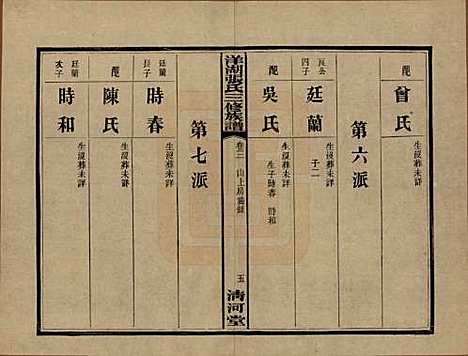 配
曾氏
生沒葬未詳
第六派
良公
四子
廷蘭
生沒葬未詳
子二
配
吳氏
生沒葬未詳
生子時春 時和
洋湖張氏三修族譜
卷二 山上房齒錄
五
清河堂
第七派
廷蘭
長子
時春
生沒葬未詳
配
陳氏
生沒葬未詳
廷蘭
次子
時和
生沒葬未詳